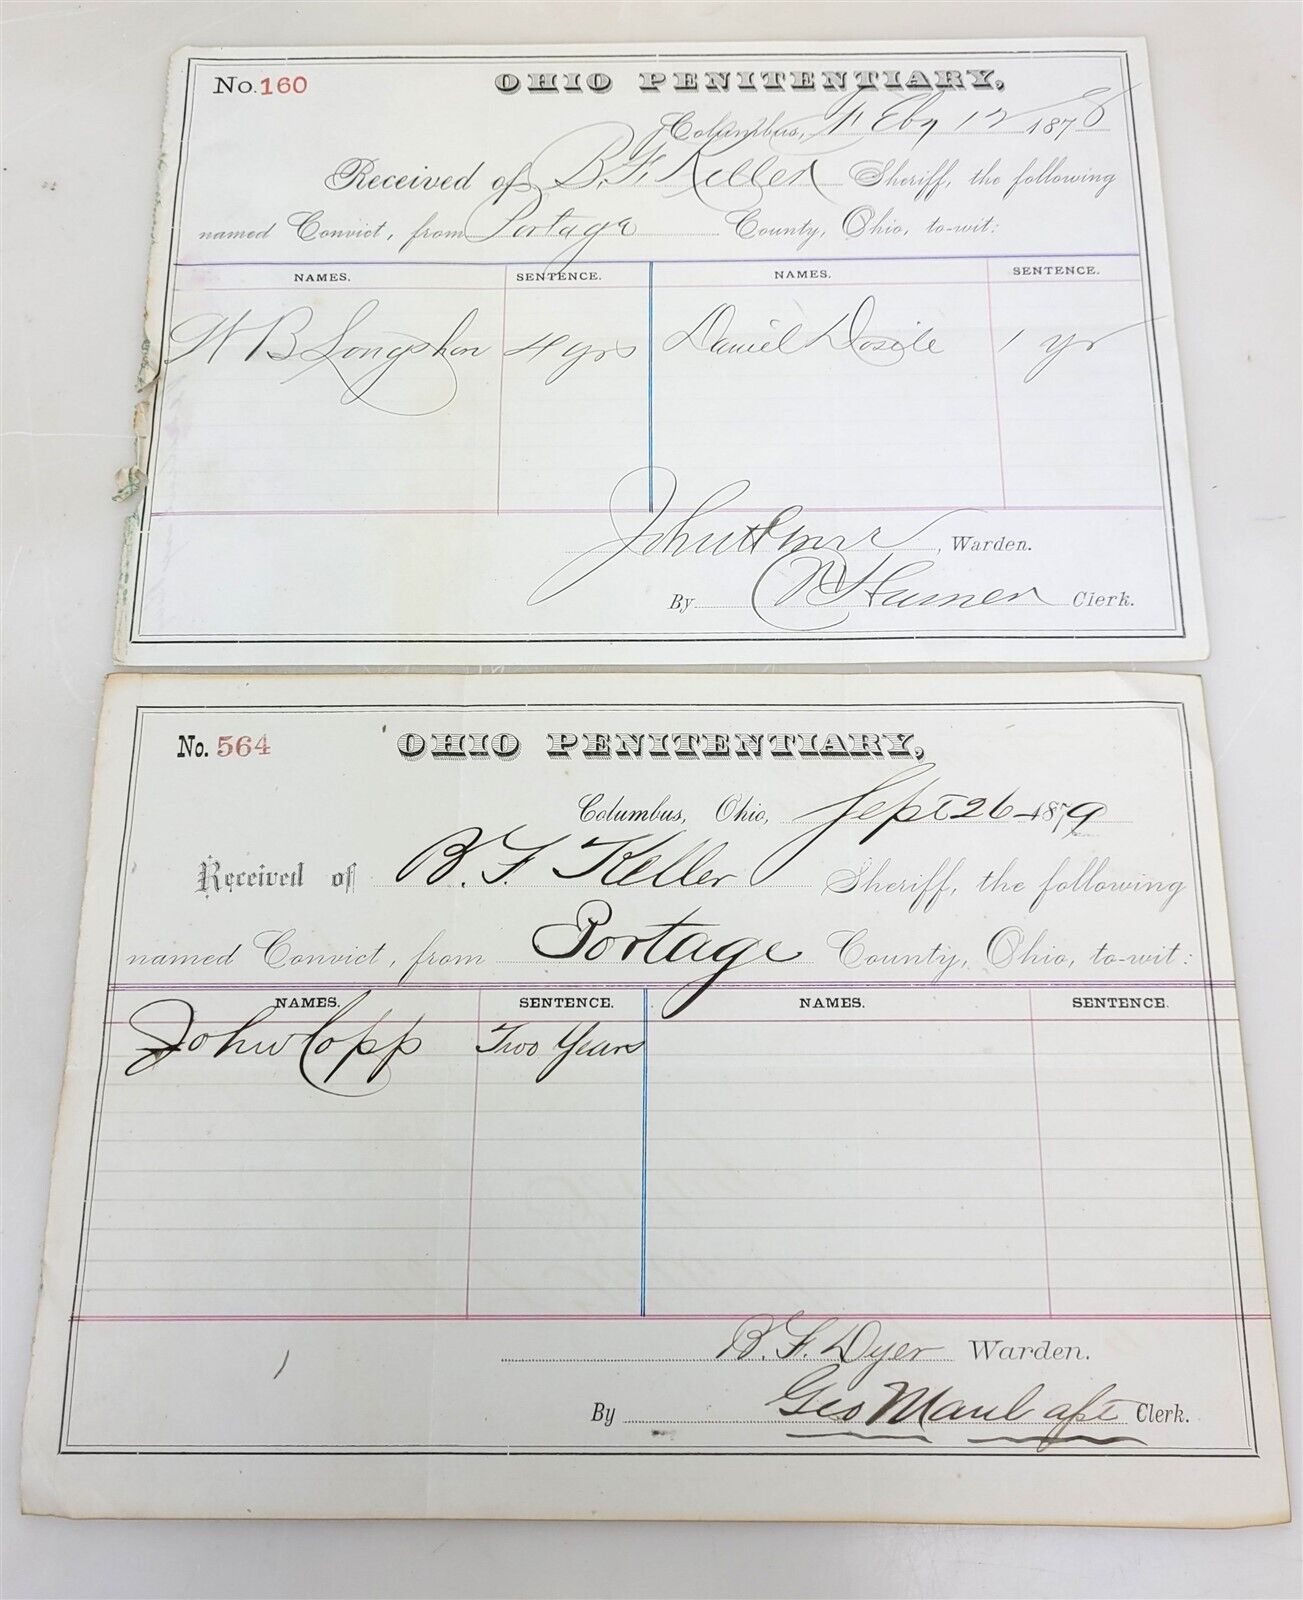 No. 160 OHIO PENITENTIARY,
Columbus, Feby 12 1878
Received of B. F. Keller Sheriff, the following
named Convict, from Portage County, Ohio, to-wit:
NAMES. SENTENCE. NAMES. SENTENCE.
W B Longshon 4 yrs Daniel Dosile 1 yr
John , Warden.
By Clerk.
No. 564 OHIO PENITENTIARY,
Columbus, Ohio, Sept 26 1879
Received of B. F. Keller Sheriff, the following
named Convict, from Portage County, Ohio, to-wit:
NAMES. SENTENCE. NAMES. SENTENCE.
John Copp Two Years
B. F. Dyer Warden.
By Geo Maul asst Clerk.